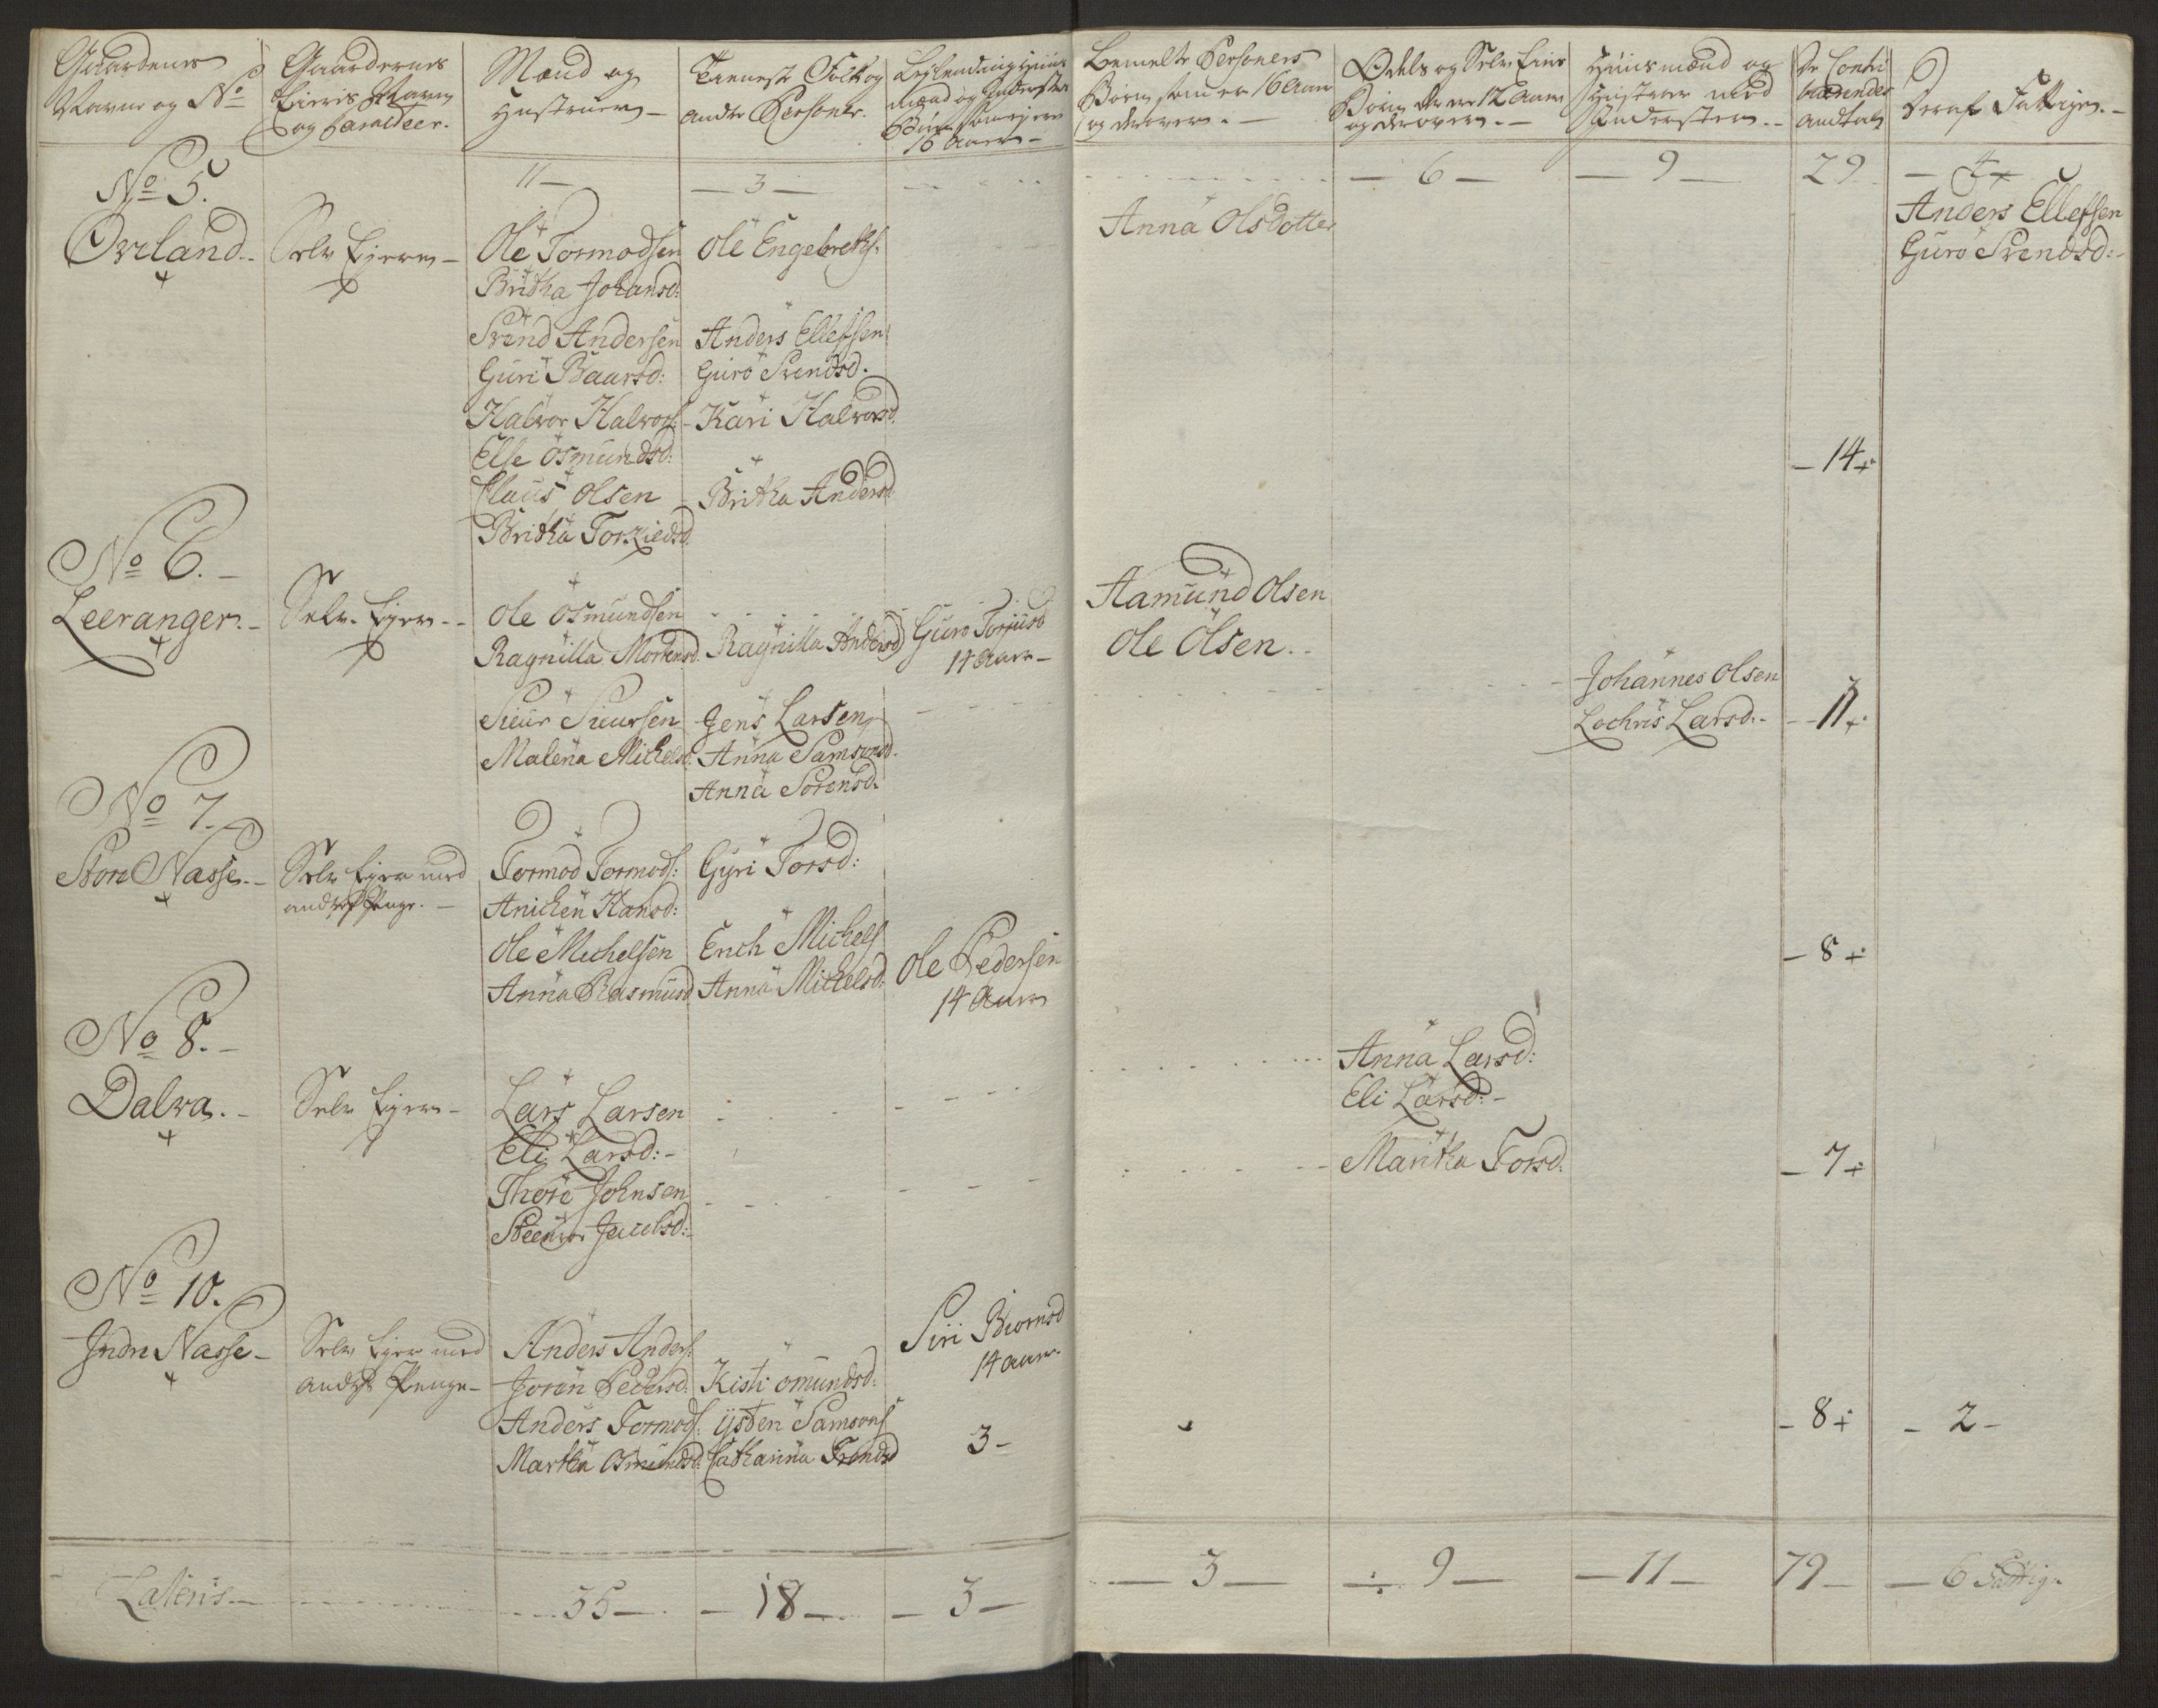 Gaardenes
Navne og No
Gaardernes
Eieris Navn
og
Mænd og
Hustruer
Tieneste Folk og
andre Personer.
16 Aar
Bemelte Personers
Børn som er 16 Aar
og derover.
Odels og Selv Eier
Børn der er 12 Aar
og derover.
Huusmænd og
Hustruer med
Inderster.
De Contri
buerende
Andtal
Deraf Fattige.
11 — 3 — 6 — 9 — 29 — 4
No 5.
Ovrland.
Selv Ejere
Ole Tormodsen
Britha Johansd:
Svend Andersen
Guri Baarsd:
Halvor Halvors:
Else Osmundsd:
Claus Olsen
Britha Torkieldsd.
Ole Engebrets:
Anders Ellefsen
Guro Svendsd.
Kari Halvorsd.
Britha Andersd
Anna Olsdotter
14
Anders Ellefsen
Guro Svendsd:
No 6.
Leeranger.
Selv Ejere
Ole Osmundsen
Ragnilla Mortensd.
Siuur Siuursen
Malena Michelsd:
Ragnilla Andersd
Jens Larsen
Anna Samsonsd.
Anna Sørensd.
Guro Torjusd
14 Aar
Aamund Olsen
Ole Olsen
Johannes Olsen
Lochris Larsd.
11
No 7.
Store Nasse.
Selv Ejer med
andres Penge.
Tormod Tormods:
Anichen Hansd:
Ole Michelsen
Anna Rasmusd
Gyri Torsd:
Erich Michels
Anna Michelsd:
Ole Pedersen
14 Aar
8
No 8.
Dalva.
Selv Ejere
Lars Larsen
Eli Larsd:
Thore Johnsen
Steenvor Jacobsd:
Anna Larsd:
Eli Larsd:
Maritha Torsd.
7
No 10.
Indre Nasse
Selv Ejer med
andres Penge
Anders Anders:
Joren Pedersd:
Anders Tormods:
Martha Osmundsd:
Kisti Omundsd:
Ysten Samsons
Catharina Trondsd
Siri Biornsd
14 aar
3
8
2
Lateris — 35 — 18 — 3 — 3 — 9 — 11 — 79 — 6 Fattig.